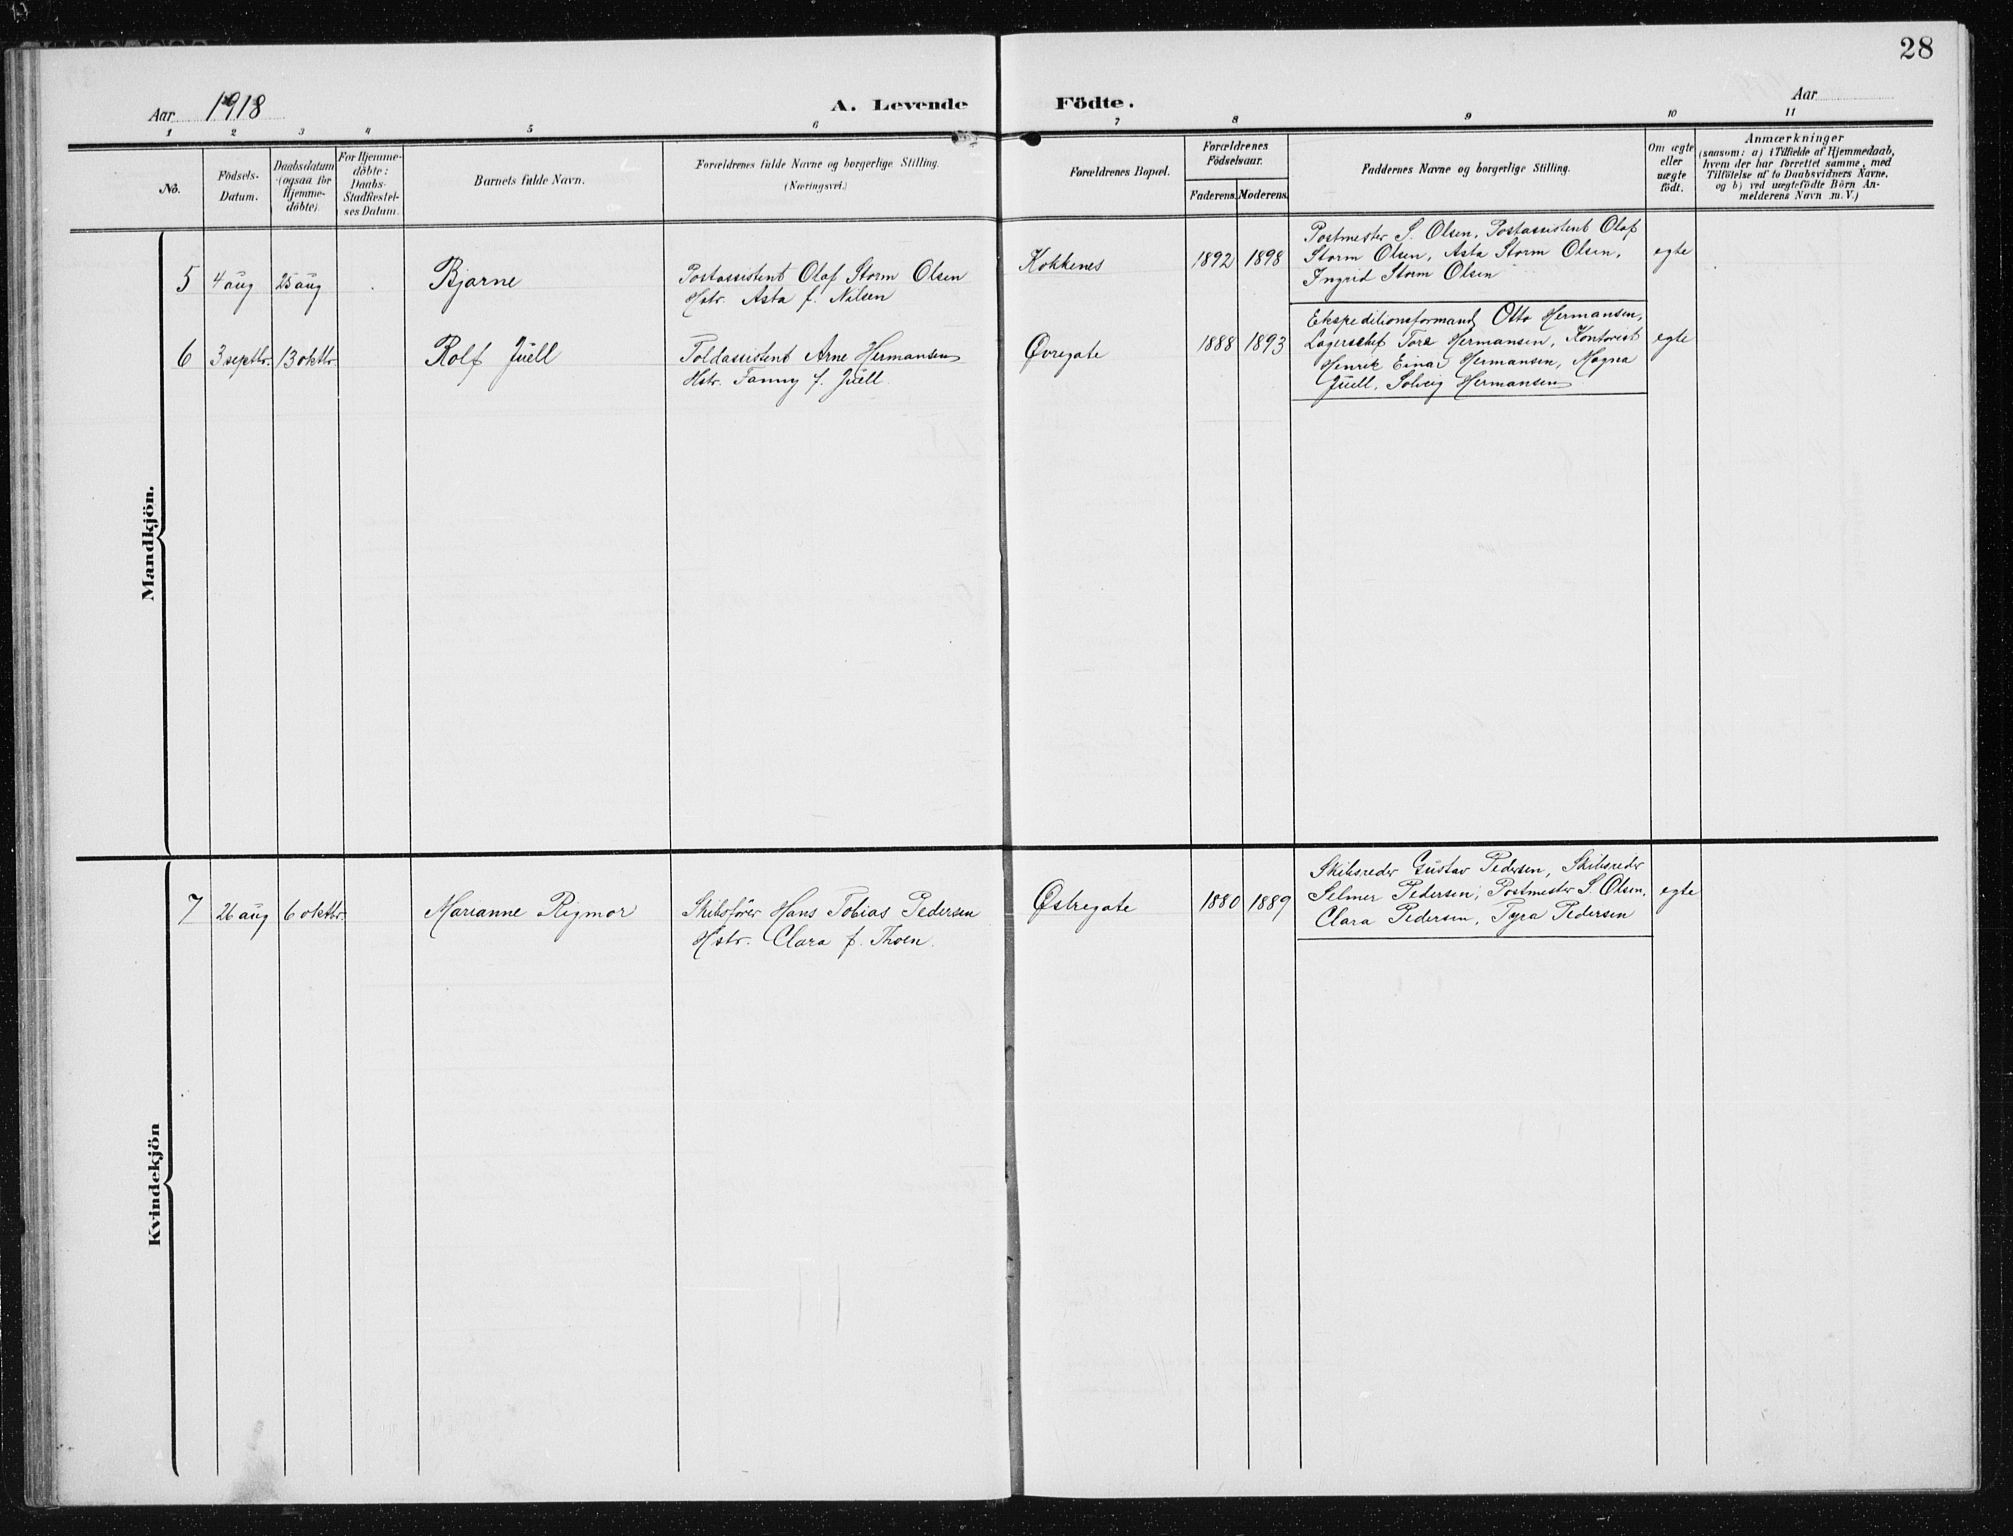 28
Aar 1918
A. Levende
Födte.
Aar
1 2 3 4 5 6 7 8 9 10 11
No.
Födsels-
Datum.
Daabsdatum
(ogsaa for
Hjemme-
döbte).
For Hjemme-
döbte:
Daabs-
Stadfæstel-
ses Datum.
Barnets fulde Navn.
Forældrenes fulde Navne og borgerlige Stilling.
(Næringsvei.)
Forældrenes Bopæl.
Forældrenes
Födselsaar.
Faderens. Moderens.
Faddernes Navne og borgerlige Stilling.
Om ægte
eller
uægte
födt.
Anmærkninger
(saasom: a) i Tilfælde af Hjemmedaab,
hvem der har forrettet samme, med
Tilföielse af to Daabsvidners Navne,
og b) ved uægtefödte Börn An-
melderens Navn m. V.)
Mandkjön.
5 4 aug 25 aug Bjarne
Postassistent Olaf Storm Olsen
Hstr. Asta f. Nilsen
Kokkenes 1892 1898
Postmester S. Olsen, Postassistent Olaf
Storm Olsen, Asta Storm Olsen,
Ingrid Storm Olsen
egte
6 3 septbr. 13 oktbr. Rolf Juell
Toldassistent Arne Hermansen
Hstr. Fanny f. Juell.
Øvregate 1888 1893
Ekspeditionsformand Otto Hermansen,
Lagerschef Tore Hermansen, Kontorist
Henrik Einar Hermansen, Magna
Juell, Solveig Hermansen
egte
Kvindekjön
7 26 aug 6 oktbr. Marianne Rigmor
Skibsfører Hans Tobias Pedersen
Hstr. Clara f. Thoen.
Østregate 1880 1889
Skibsreder Gustav Pedersen, Skibsreder
Selmer Pedersen, Postmester S. Olsen,
Clara Pedersen, Tyra Pedersen
egte